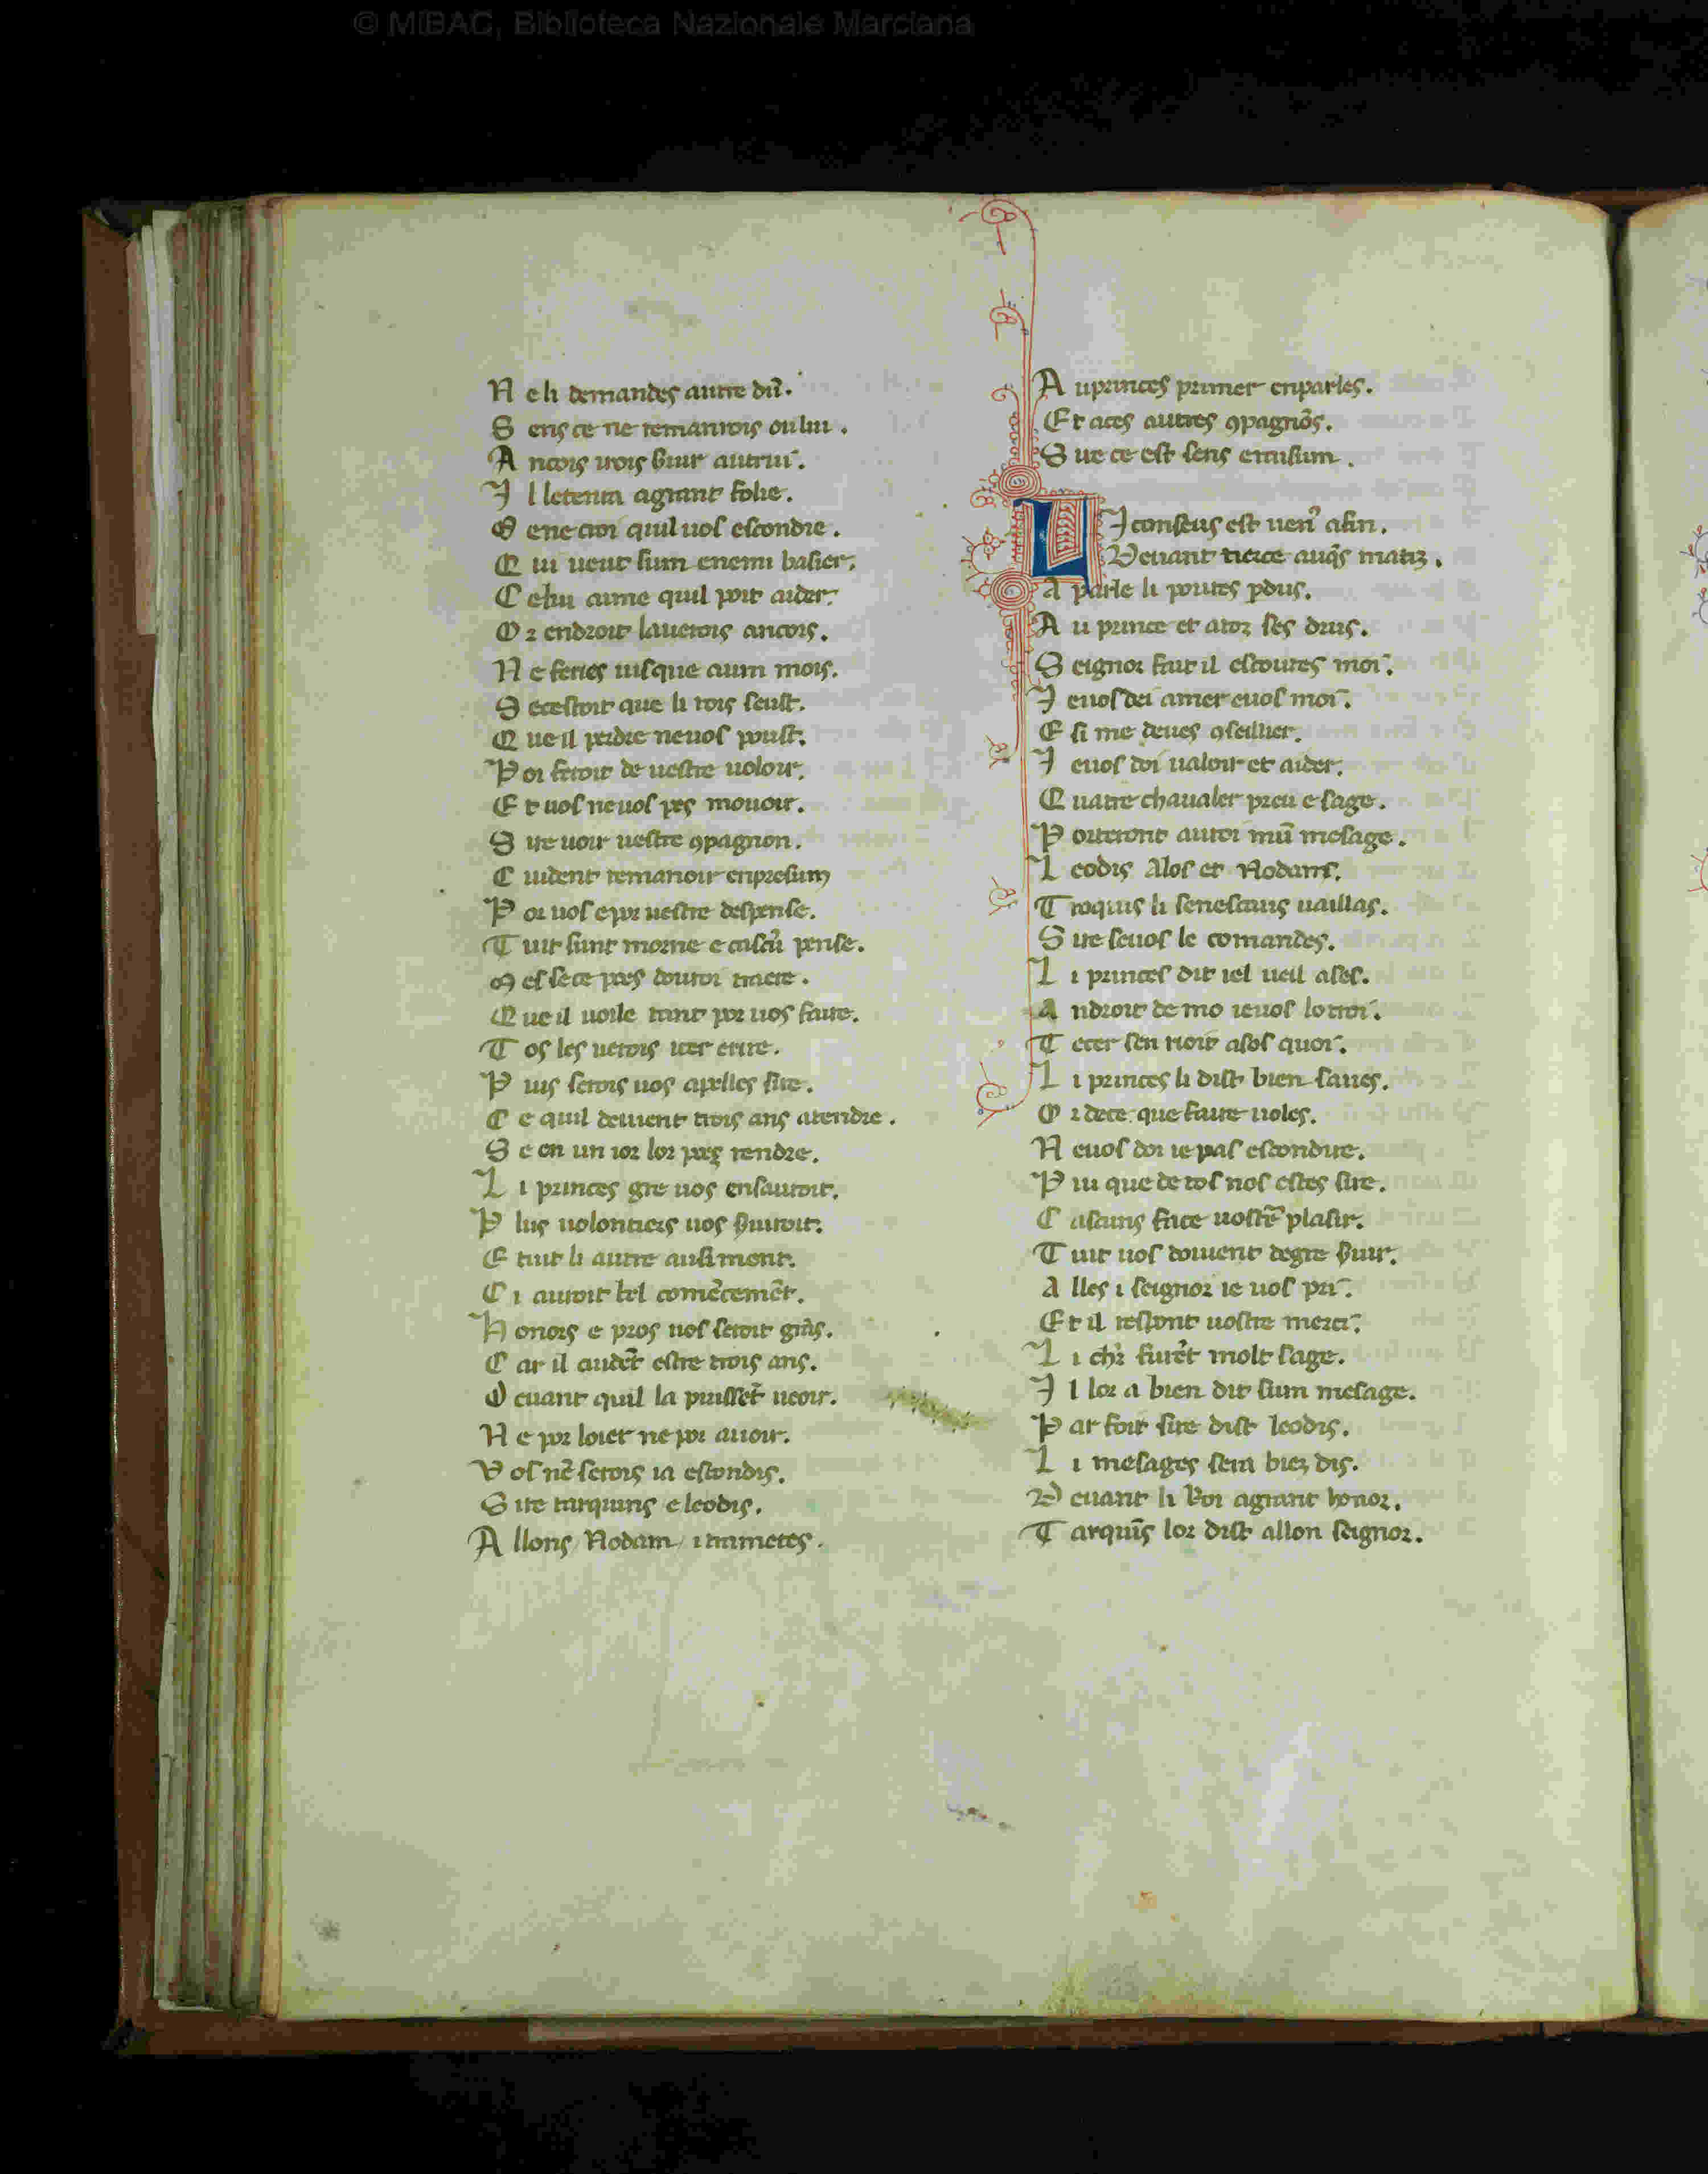 © MiBAC, Biblioteca Nazionale Marciana
N e li demandes autre dũ.
S ens ce ne remanrois oului.
A ncois irois ẜuir autrui.
I l letenra agrant folie.
G ene croi quil uos escondie.
Q ui ueut sum enemi basier.
C elui aime quil poit aider.
O r endroit lauerois ancois.
N e feries iusque aum mois.
S ecestoit que li rois seust.
Q ue il perdre neuos poust.
P or feroit de uestre uoloir.
E t uos neuos pes mouoir.
S ire uoir uestre ꝯpagnon.
C uident remanoir enpresum
P or uos epor uestre despense.
T uit sunt morne e cascũ pense.
M es sece pres douroi traere.
Q ue il uoile tant por uos faire.
T os les uerois iter erire.
P uis serois uos apelles sire.
C e quil deuient trois ans atendre.
S e en un ior lor pres rendre.
L i princes gre uos ensauroit.
P lus uolontiers uos ẜuiroit.
E tuit li autre ausiment.
C i auroit bel comẽcemẽt.
H onors e pros uos seroit grãs.
C ar il cudẽt estre trois ans.
D euant quil la puissẽt ueoir.
N e por loier ne por auoir.
V os nẽ serois ia escondis.
S ire tarquins e leodis.
A llons Nodam i trametes.
A uprinces primer enparles.
Et aces autres ꝯpagnõs.
Q ue ce est sens entusum.
LI conseus est uen᷒ afin.
Deuant tierce auq̃s matiz.
a parle li poures pdus.
A u prince et atoz ses drus.
S eignor fait il escoutes moi.
I euos dei amer euos moi.
E si me deues ꝯseillier.
I euos doi ualoir et aider.
Q uatre chaualer preu e sage.
P orteront autoi mũ mesage.
L eodis Alos et Nodans.
T roquis li senescaus uaillas.
S ire seuos le comandes.
L i princes dit iel ueil ases.
a ndroit de mo ieuos lotroi.
T ecer sen rioit asos quoi.
L i princes li dist bien saues.
O r dece que faire uoles.
N euos doi ie pas escondire.
P ui que de tos nos estes sire.
C ascuns face uostrẽ plasir.
T uit uos doiuent degre ẜuir.
A lles i seignor ie uos pri.
Et il respont uostre merci.
L i chr̃ furẽt molt sage.
I l lor a bien dit sum mesage.
P ar foit sire dist leodis.
L i mesages sera biez dis.
D euant li Roi agrant honor.
T arquĩs lor dist allon seignor.